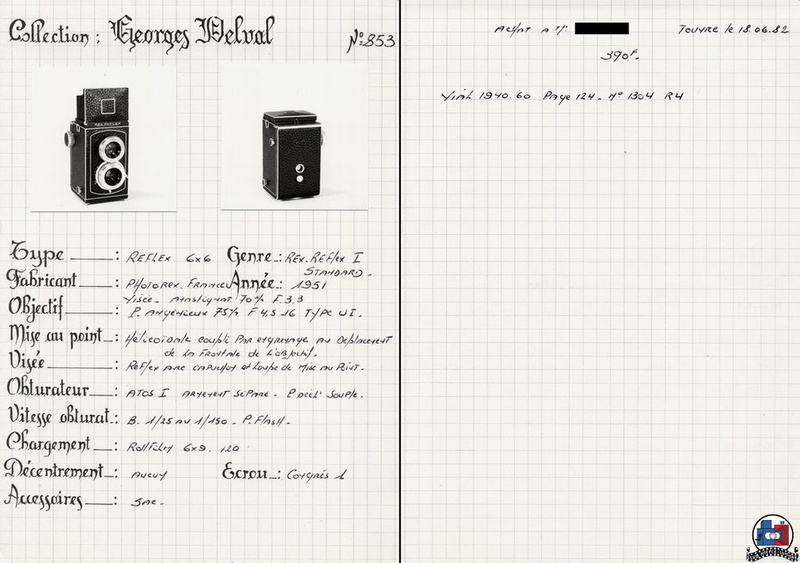 Collection : Georges Delval
N° 853
Type : REFLEX 6x6 Genre : REX. REFLEX I
STANDARD.
Fabricant : PHOTOREX. FRANCE Année : 1951
VISÉE. ANASTIGMAT 70% F. 3,3
Objectif : P. ANGÉNIEUX 75% F 4,5 _16 TYPE
Mise au point : HÉLICOÏDALE COUPLÉ PAR ENGRENAGE AU DÉPLACEMENT
DE LA FRONTALE DE L'OBJECTIF.
Visée : REFLEX AVEC CAPUCHON ET LOUPE DE MISE AU POINT.
Obturateur : ATOS I ARMEMENT SÉPARÉ. P. DÉCL' SOUPLE.
Vitesse obturat. : B. 1/25 AU 1/150 - P. FLASH.
Chargement : ROLLFILM 6x9. 120
Décentrement : AUCUN Ecrou : CONGRÈS 1
Accessoires : SAC.
ACHAT A Mr
TOUVRE le 18.06.82
390F.
VIAL 1940.60 Page 124 - N° 1304 R4